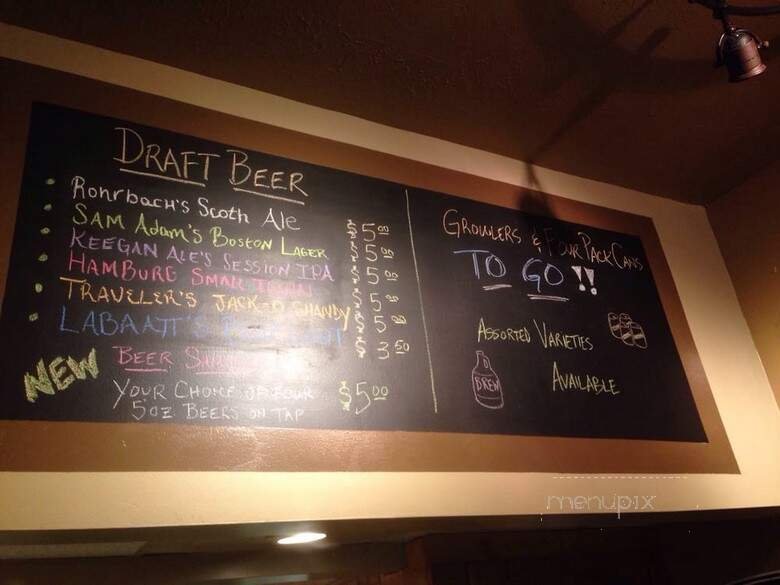 DRAFT BEER
Rohrbach's Scoth Ale $5.00
SAM Adam's BOSTON LAGER $5.00
KEEGAN ALE'S SESSION IPA $5.00
HAMBURG SMAL $5.00
TRAVELER'S JACK-O SHANDY $5.00
LABAATT'S $3.50
NEW
BEER
YOUR CHOICE OF FOUR $5.00
5OZ BEERS ON TAP
GROWLERS & FOUR PACK CANS
TO GO!!
ASSORTED VARIETIES
AVAILABLE
BREW
menupix